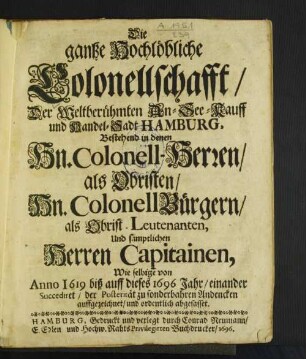 Die
gantze Hochlöbliche
Colonellschafft /
Der Weltberühmten An-See-Kauff
und Handel-Stadt HAMBURG.
Bestehend in denen
Hn. Colonell-Herren /
als Obristen /
Hn. Colonell Bürgern /
als Obrist-Leutenanten,
Und sämptlichen
Herren Capitainen,
Wie selbige von
Anno 1619 biß auff dieses 1696 Jahr / einander
Succediret / der Posterität zu sonderbahren Andencken
auffgezeichnet / und ordentlich abgefasset.
HAMBURG, Gedruckt und verlegt durch Conrad Neumann /
E. Edlen und Hochw. Rahts Privilegirten Buchdrucker / 1696.